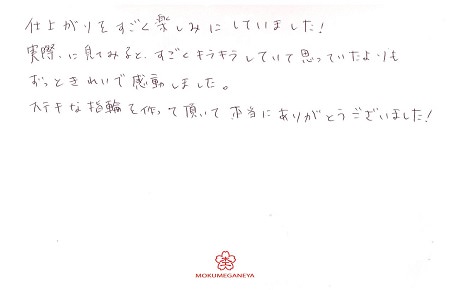 仕上がりをすごく楽しみにしていました!
実際に見てみると、すごくキラキラしていて思っていたよりも
ずっときれいで感動しました。
ステキな指輪を作って頂いて本当にありがとうございました!
MOKUMEGANEYA